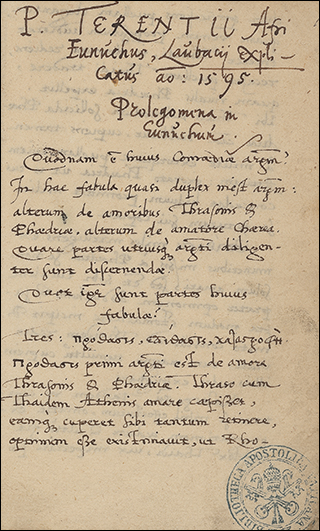 P. TERENTII Afri
Eunuchus, Laubacij expli-
catus ao: 1595.
Prolegomena in
Eunuchum.
Quodnam ẽ huius Comœdiæ argm̃?
In hac fabula quasi duplex inest argm̃:
alterum de amoribus Thrasonis &
Phædriæ. alterum de amatore Cherea.
Quare partes utriusq; argti diligen-
ter sunt discernendæ.
Quot igr sunt partes huius
fabulæ?
Tres: προτασις, επιτασις,
προτασις primi argti est de amore
Thrasonis & Phædriæ. Thraso cum
Thaidem Athenis amare cœpisset,
eamq; cuperet sibi tantum retinere,
optimum esse existimavit, ut Rho-
BIBLIOTHECA APOSTOLICA VATICANA